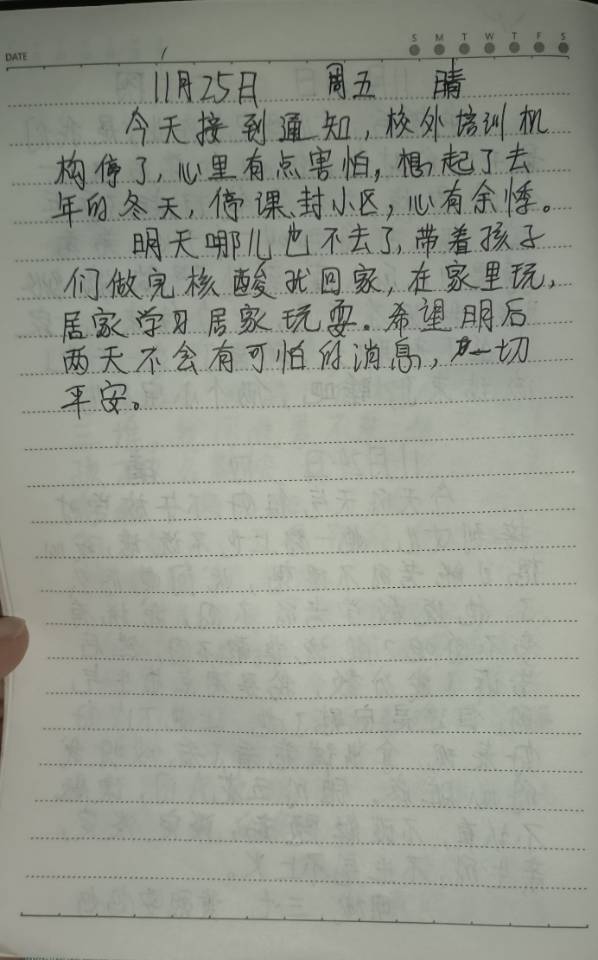 DATE
S M T W T F S
11月25日 周五 晴
今天接到通知，校外培训机
构停了，心里有点害怕，想起了去
年的冬天，停课、封小区，心有余悸。
明天哪儿也不去了，带着孩子
们做完核酸就回家，在家里玩，
居家学习居家玩耍。希望明后
两天不会有可怕的消息，一切
平安。